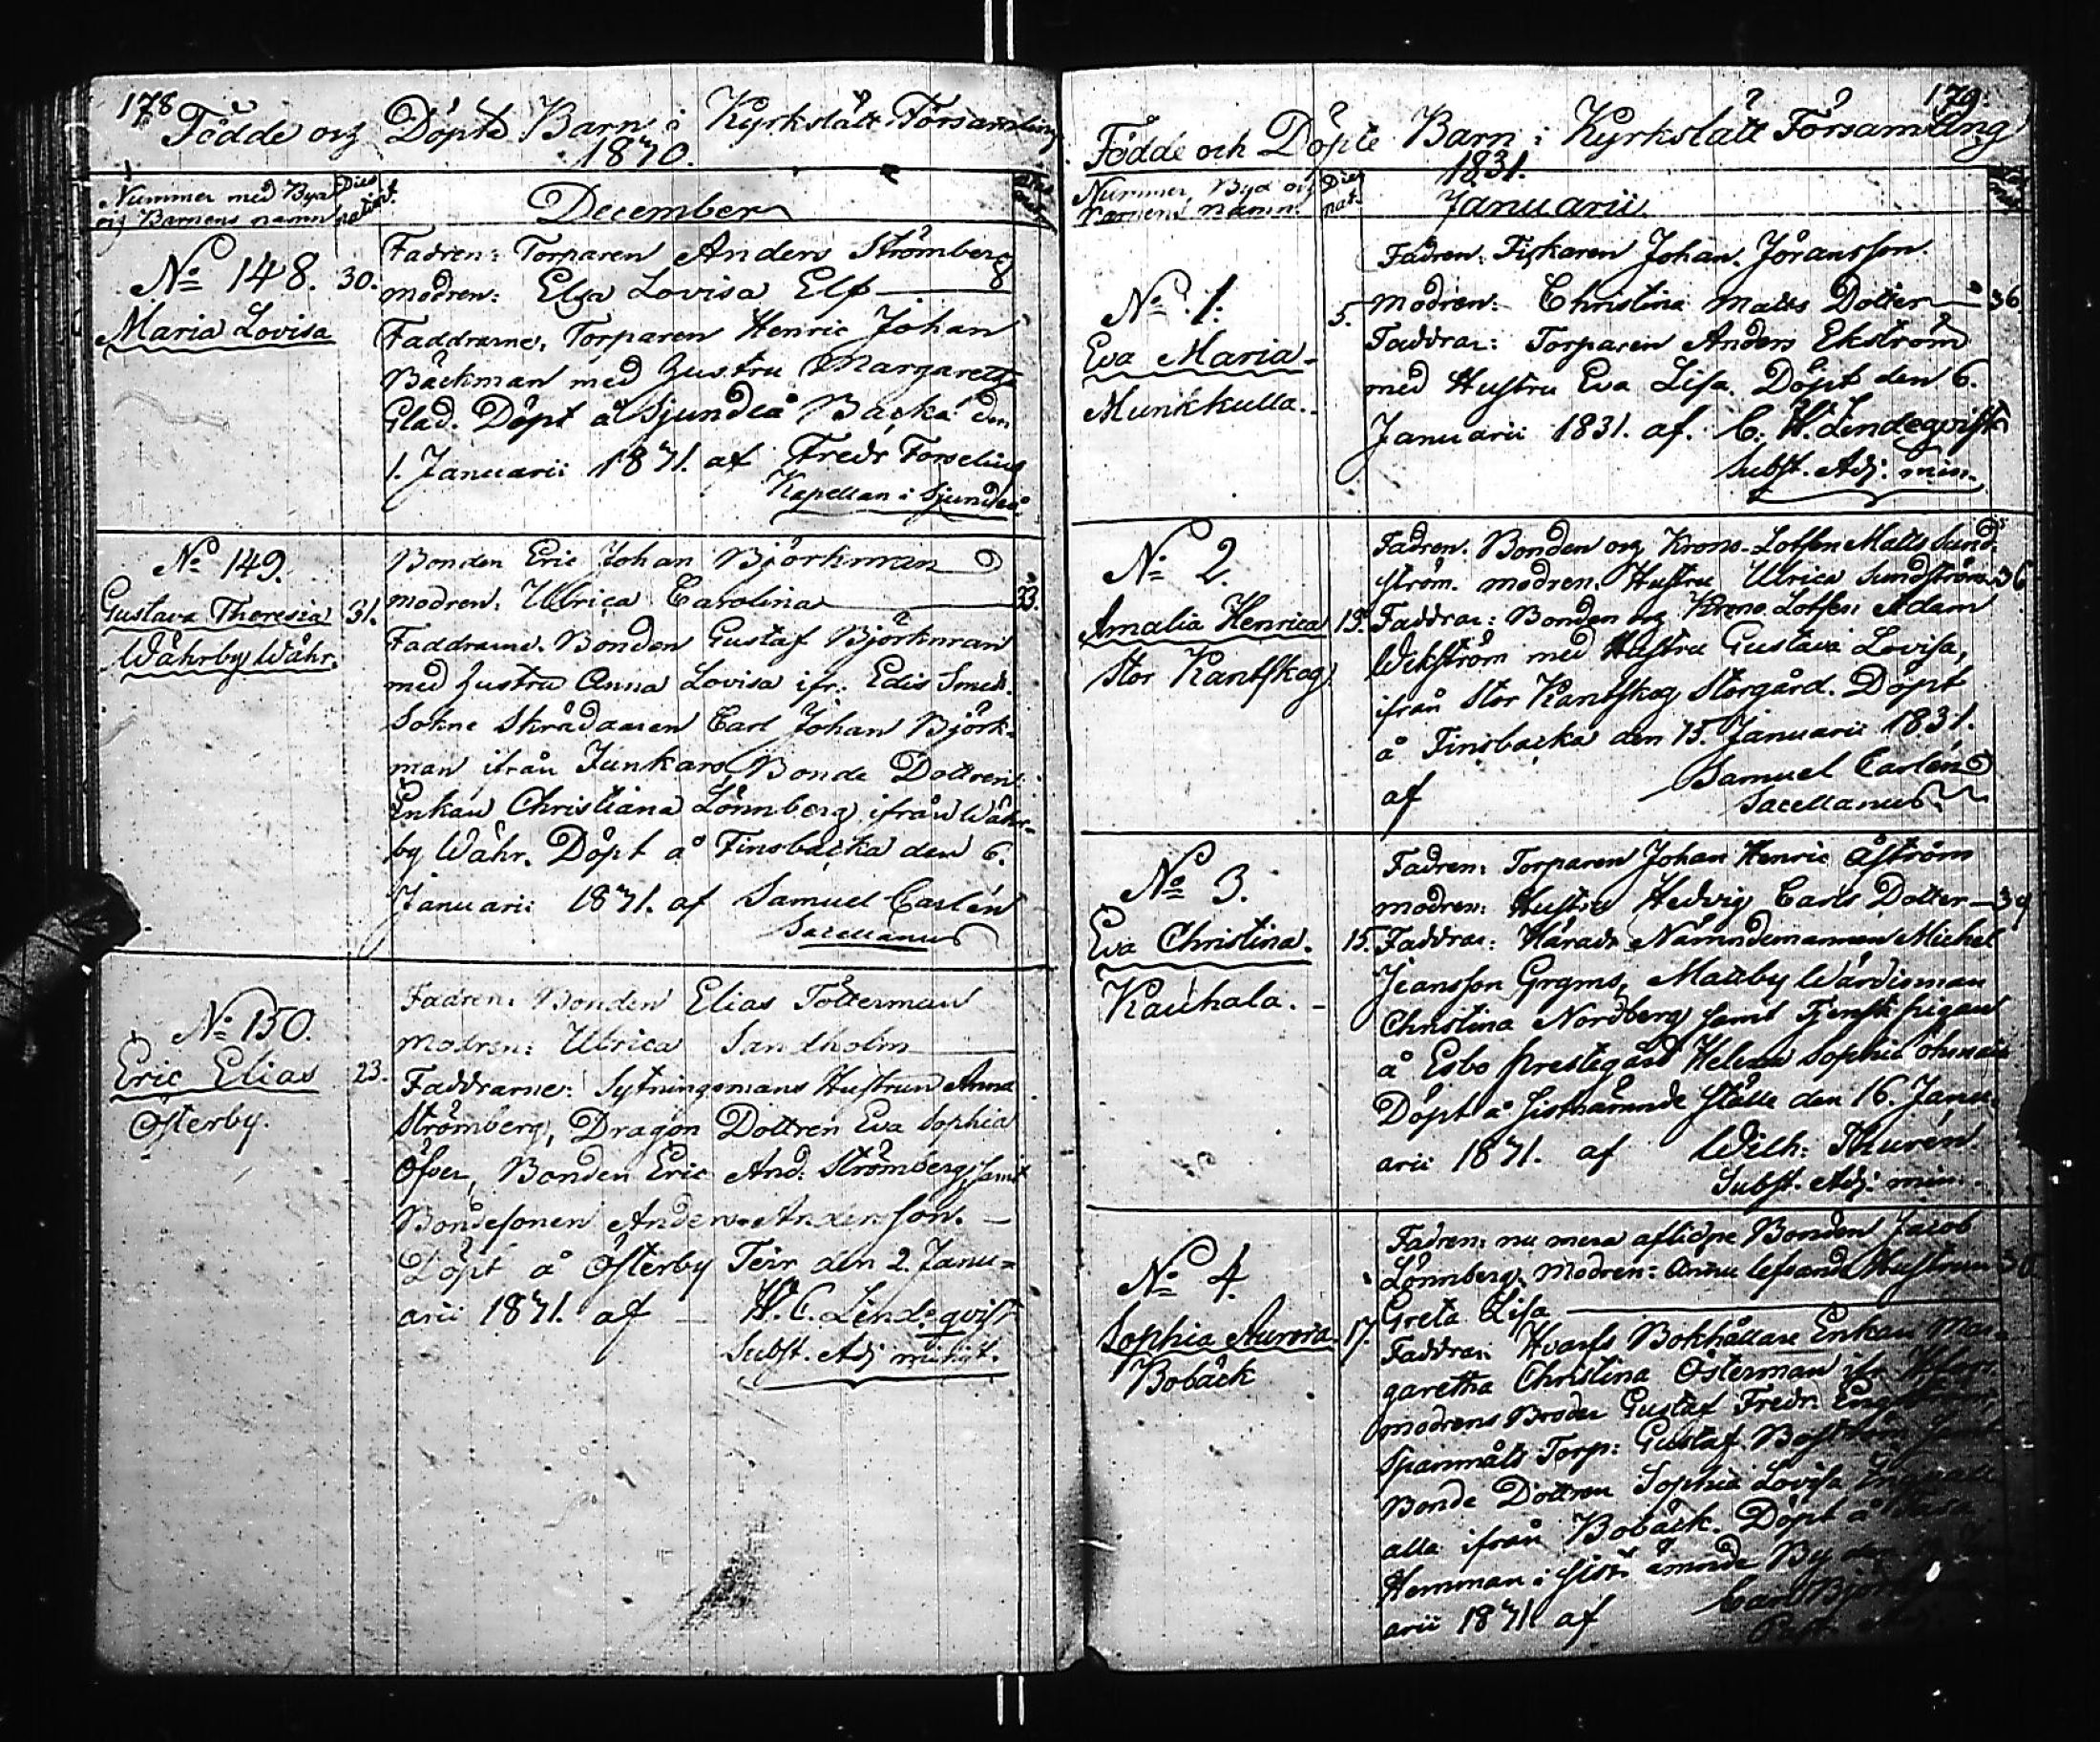 178
Födde och Döpte Barn i Kyrkslätt Församling
1830.
Nummer med Byn
och Barnens namn
Dies
natiut.
December
No 148. 30.
Maria Lovisa
Fadren: Torparen Anders Strömberg
modren: Elsa Lovisa Elf
Faddrarne, Torparen Henric Johan
Bäckman med hustru Margaretha
Glad. Döpt å Sjundeå Backa den
1. Januarii 1831. af Fredr Forselius
Kapellan i Sjundeå
No 149.
Gustava Theresia 31.
Wåhrby Wåhr.
Bonden Eric Johan Björkman
modren: Ulrica Carolina 33.
Faddrarne. Bonden Gustaf Björkman
med hustru Anna Lovisa ifr: Edis Smeds.
Sokne Skräddaren Carl Johan Björk-
man ifrån Junkars Bonde Dottren
Enkan Christiana Lönnberg ifrån Wåhr-
by Wåhr. Döpt å Finsbacka den 6.
Januarii 1831. af Samuel Carlén
Sacellanus
No 150.
Eric Elias 23.
Österby.
Fadren: Bonden Elias Tötterman
modren: Ulrica Sandholm
Faddrarne: Sytningsmans Hustrun Anna
Strömberg, Dragon Dottren Eva Sophia
Öfver, Bonden Eric And: Strömberg, samt
Bondesonen Anders Andersson.
Döpt å Österby Teir den 2. Janu-
arii 1831. af W. C. Lindeqvist
Subst. Adj minist.
179.
Födde och Döpte Barn i Kyrkslätt Församling
1831.
Nummer, Bya och
Barnens namn.
Dies
nat.
Januarii
No 1.
Eva Maria
Munkkulla.
5.
Fadren: Fiskaren Johan Jöransson.
Modren: Christina Matts Dotter 36.
Faddrar: Torparen Anders Ekström
med Hustru Eva Lisa. Döpt den 6.
Januarii 1831. af. C. W. Lindeqvist
Subst. Adj: min.
No 2.
Amalia Henrica 13.
Stor Kantskog
Fadren. Bonden och Krono-Lotsen Matts Sund-
ström. modren. Hustru Ulrica Sundström 36
Faddrar: Bonden och Krono Lotsen Adam
Wekström med Hustru Gustava Lovisa,
ifrån Stor Kantskog Storgård. Döpt
å Finsbacka den 15. Januarii 1831.
af Samuel Carlén
Sacellanus
No 3.
Eva Christina. 15.
Kauhala.
Fadren: Torparen Johan Henric Åström
modren: Hustru Hedvig Carls Dotter 39
Faddrar: Härads Nämndemannen Michel
Jeansson Grgms, Mattby Wärdsman
Christina Nordberg samt Tjenste pigan
å Esbo prestegård Helena Sophia
Döpt å sistnämnde ställe den 16. Janu-
arii 1831. af Wilh: Thurén
Subst. Adj: min.
No 4.
Sophia Aurora 17.
Bobäck
Fadren: nu mera aflidne Bonden Jacob
Lönnberg. Modren: Ännu lefvande Hustrun
Greta Lisa
Faddrar: Hvarfs Bokhållare Enkan Mar-
garetha Christina Österman ifr.
modrens Broder Gustaf Fredr. Engström,
Spanmåls Torp: Gustaf Boström samt
Bonde Dottren Sophia Lovisa
alla ifrån Bobäck. Döpt å
Hemman i sist nämnde By den
arii 1831 af Carl